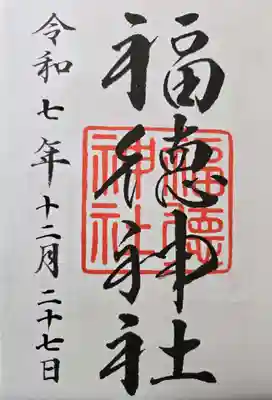 福徳神社
福德神社
令和七年十二月二十七日